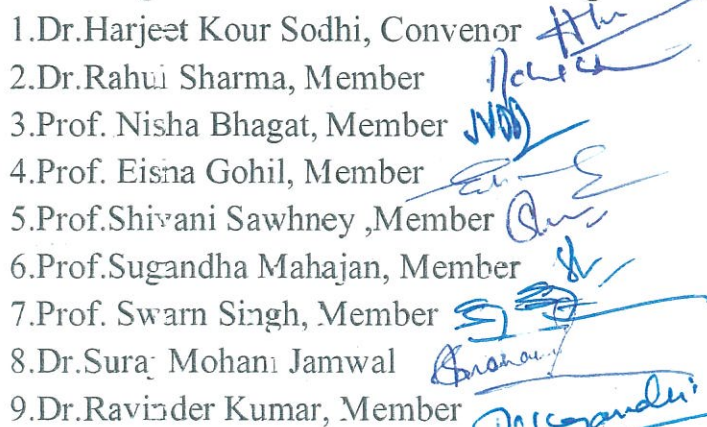 1.Dr.Harjeet Kour Sodhi, Convenor
2.Dr.Rahul Sharma, Member
3.Prof. Nisha Bhagat, Member
4.Prof. Eisha Gohil, Member
5.Prof.Shivani Sawhney ,Member
6.Prof.Sugandha Mahajan, Member
7.Prof. Swarn Singh, Member
8.Dr.Suraj Mohan Jamwal
9.Dr.Ravinder Kumar, Member